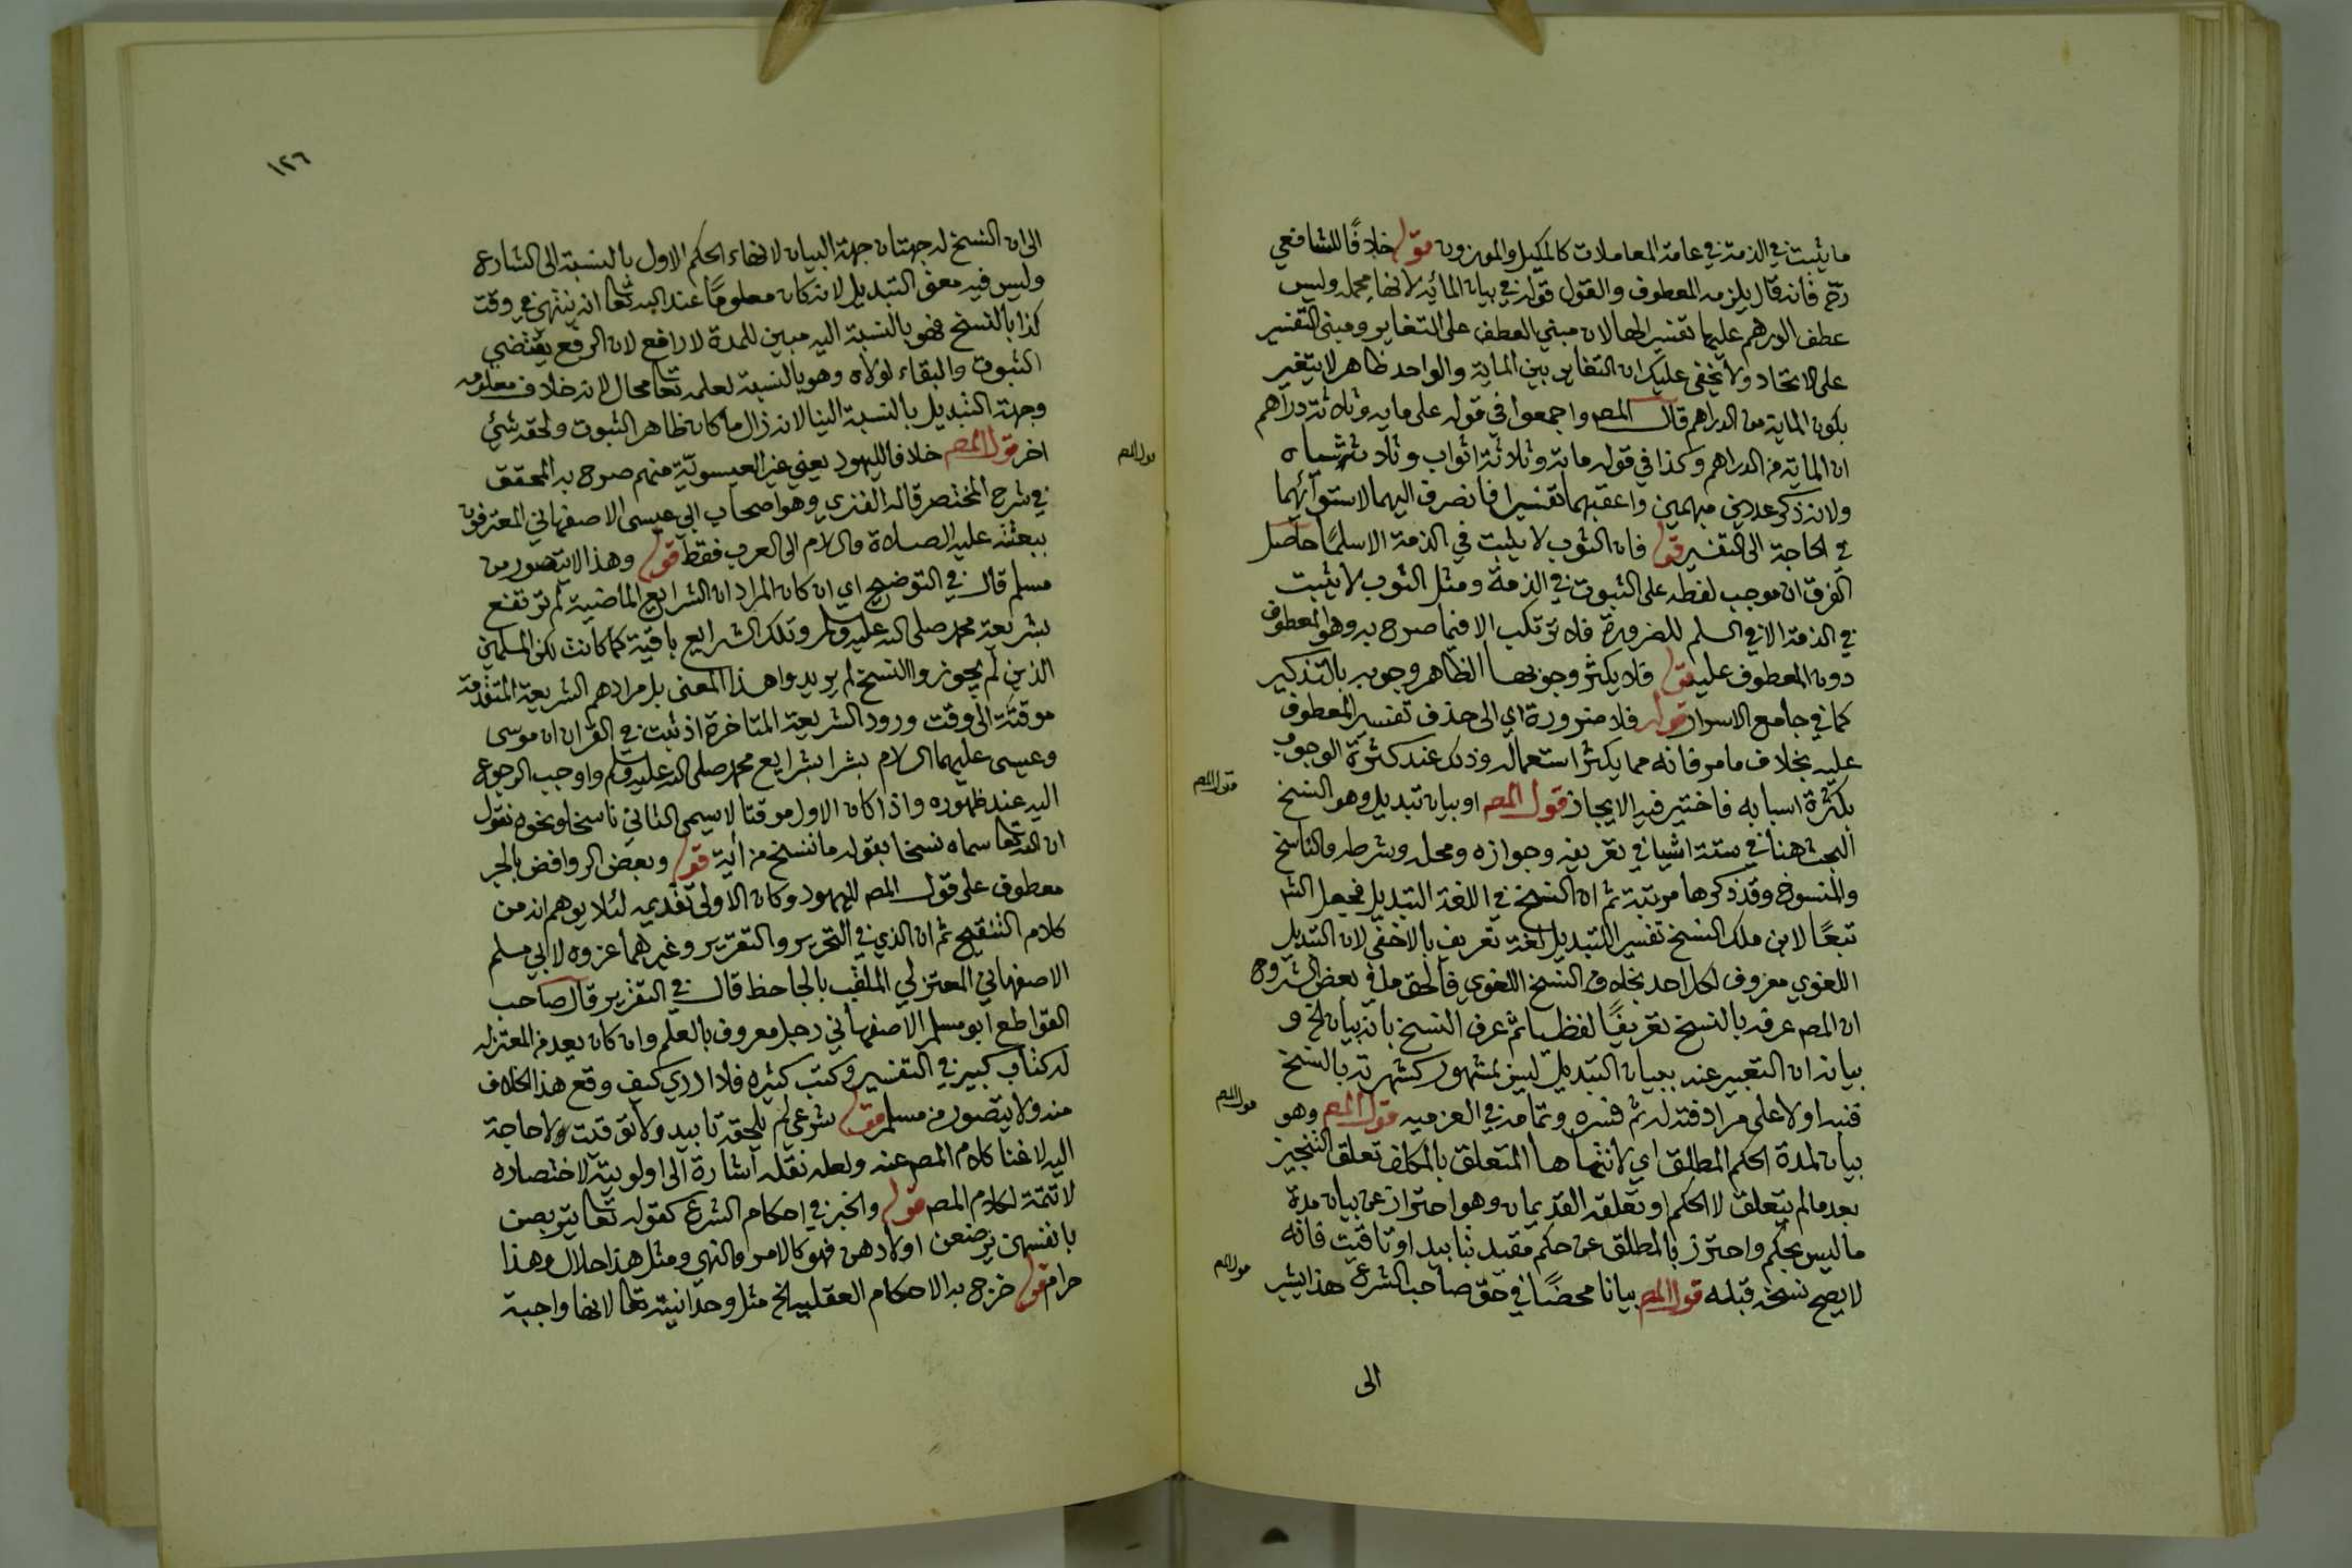 ما يثبت في الذمة في عامة المعاملات كالمكيل والموزون قوله خلافًا للشافعي
رح فانه قال يلزمه المعطوف والقول قوله في بيان المائة لانها مجملة وليس
عطف الدرهم عليها تفسيرا لها لان مبنى العطف على التغاير ومبنى التفسير
على الاتحاد ولا يخفى عليك ان التغاير بين المائة والواحد ظاهر لا يتغير
بكون الماية من الدراهم قال المصـ واجمعوا في قوله على مايه وثلاثة دراهم
ان الماية من الدراهم وكذا في قوله مائة وثلاثة اثواب وثلاث شياه
ولانه ذكر عددين مبهمين واعقبهما تفسيرا فانصرف اليهما لاستوآئهما
في الحاجة الى التفسير قوله فان الثوب لا يثبت في الذمة الا سلمًا حاصل
الفرق ان موجب لفظه على الثبوت في الذمة ومثل الثوب لا يثبت
في الذمة الا في السلم للضرورة فلا ترتكب الا فيما صرح به وهو المعطوف
دون المعطوف عليه قوله فلا يكثر وجوبها الظاهر وجوبه بالتذكير
كما في جامع الاسرار قوله فلا ضرورة اي الى حذف تفسير المعطوف
عليه بخلاف ما مر فانه مما يكثر استعماله وذلك عند كثرة الوجوب
بكثرة اسبابه فاختير فيه الايجاز قول المصـ او بيان تبديل وهو النسخ
البحث هنا في ستة اشيا في تعريفه وجوازه ومحله وشرطه والناسخ
والمنسوخ وقد ذكرها مرتبة ثم ان النسخ في اللغة التبديل فجعل الشـ
تبعًا لابن ملك النسخ تفسيرا للتبديل لغة تعريف بالاخفى لان التبديل
اللغوي معروف لكل احد بخلاف النسخ اللغوي فالحق ما في بعض الشروح
ان المصـ عرفه بالنسخ تعريفًا لفظيا ثم عرف النسخ بانه بيان الخ و
بيانه ان التعبير عنه ببيان التبديل ليس بمشهور كشهرته بالنسخ
فنبه اولا على مرادفته له ثم فسره وتمامه في العزميه قول المصـ وهو
بيان لمدة الحكم المطلق اي لانتهاها المتعلق بالمكلف تعلق التنجيز
بعد ما لم يتعلق لا الحكم او تعلقه القديمان وهو احتراز عن بيان مدة
ما ليس بحكم واحترز بالمطلق عن حكم مقيد بتابيد او تاقيت فانه
لا يصح نسخه قبله قول المصـ بيانا محضًا في حق صاحب الشرع هذا يشير
الى
قول المصـ
قول المصـ
قول المصـ
١٢٦
الى ان النسخ له جهتان جهة البيان لانهاء الحكم الاول بالنسبة الى الشارع
وليس فيه معنى التبديل لانه كان معلومًا عند الله تعا انه ينتهي في وقت
كذا بالنسخ فهو بالنسبة اليه مبين للمدة لا رافع لان الرفع يقتضي
الثبوت والبقاء لولاه وهو بالنسبة لعلمه تعا محال لانه خلاف معلومه
وجهة التبديل بالنسبة الينا لانه زال ما كان ظاهر الثبوت ولحقه شئ
اخر قول المصـ خلافا لليهود يعني غير العيسوية منهم صرح به المحقق
في شرح المختصر قاله الفنري وهو اصحاب ابي عيسى الاصفهاني المعترفون
ببعثته عليه الصلاة والسلام الى العرب فقط قوله وهذا لا يتصور من
مسلم قال في التوضيح اي ان كان المراد ان الشرايع الماضية لم ترتفع
بشريعة محمد صلى الله عليه وسلم وتلك الشرايع باقية كما كانت لكن المسلمين
الذين لم يجوزوا النسخ لم يريدوا هذا المعنى بل مرادهم الشريعة المتقدمة
موقتة الى وقت ورود الشريعة المتاخرة اذ ثبت في القران ان موسى
وعيسى عليهما السلام بشرا بشرايع محمد صلى الله عليه وسلم واوجب الرجوع
اليه عند ظهوره واذا كان الاول موقتا لا يسمى الثاني ناسخا ونحوه نقول
ان الله تعا سماه نسخا بقوله ما ننسخ من آية قوله وبعض الروافض بالجر
معطوف على قول المصـ لليهود وكان الاولى تقديمه لئلا يوهم انه من
كلام التنقيح ثم ان الذي في التحرير والتقرير وغيرهما عزوه لابي مسلم
الاصفهاني المعتزلي الملقب بالجاحظ قال في التقرير قال صاحب
القواطع ابو مسلم الاصفهاني رجل معروف بالعلم وان كان يعد من المعتزله
له كتاب كبير في التفسير وكتب كثيره فلا ادري كيف وقع هذا الخلاف
منه ولا يتصور من مسلم قوله شرعي لم يلحقه تابيد ولا توقيت ولا حاجة
اليه لاغنا كلام المصـ عنه ولعله نقله اشارة الى اولويته لاختصاره
لا تتمة لكلام المصـ قوله والخبر في احكام الشرع كقوله تعا يتربصن
بانفسهن يرضعن اولادهن فهو كالامر والنهي ومثل هذا حلال وهذا
حرام قوله خرج به الاحكام العقليه الخ مثل وحدانيته تعا لانها واجبة
قول المصـ